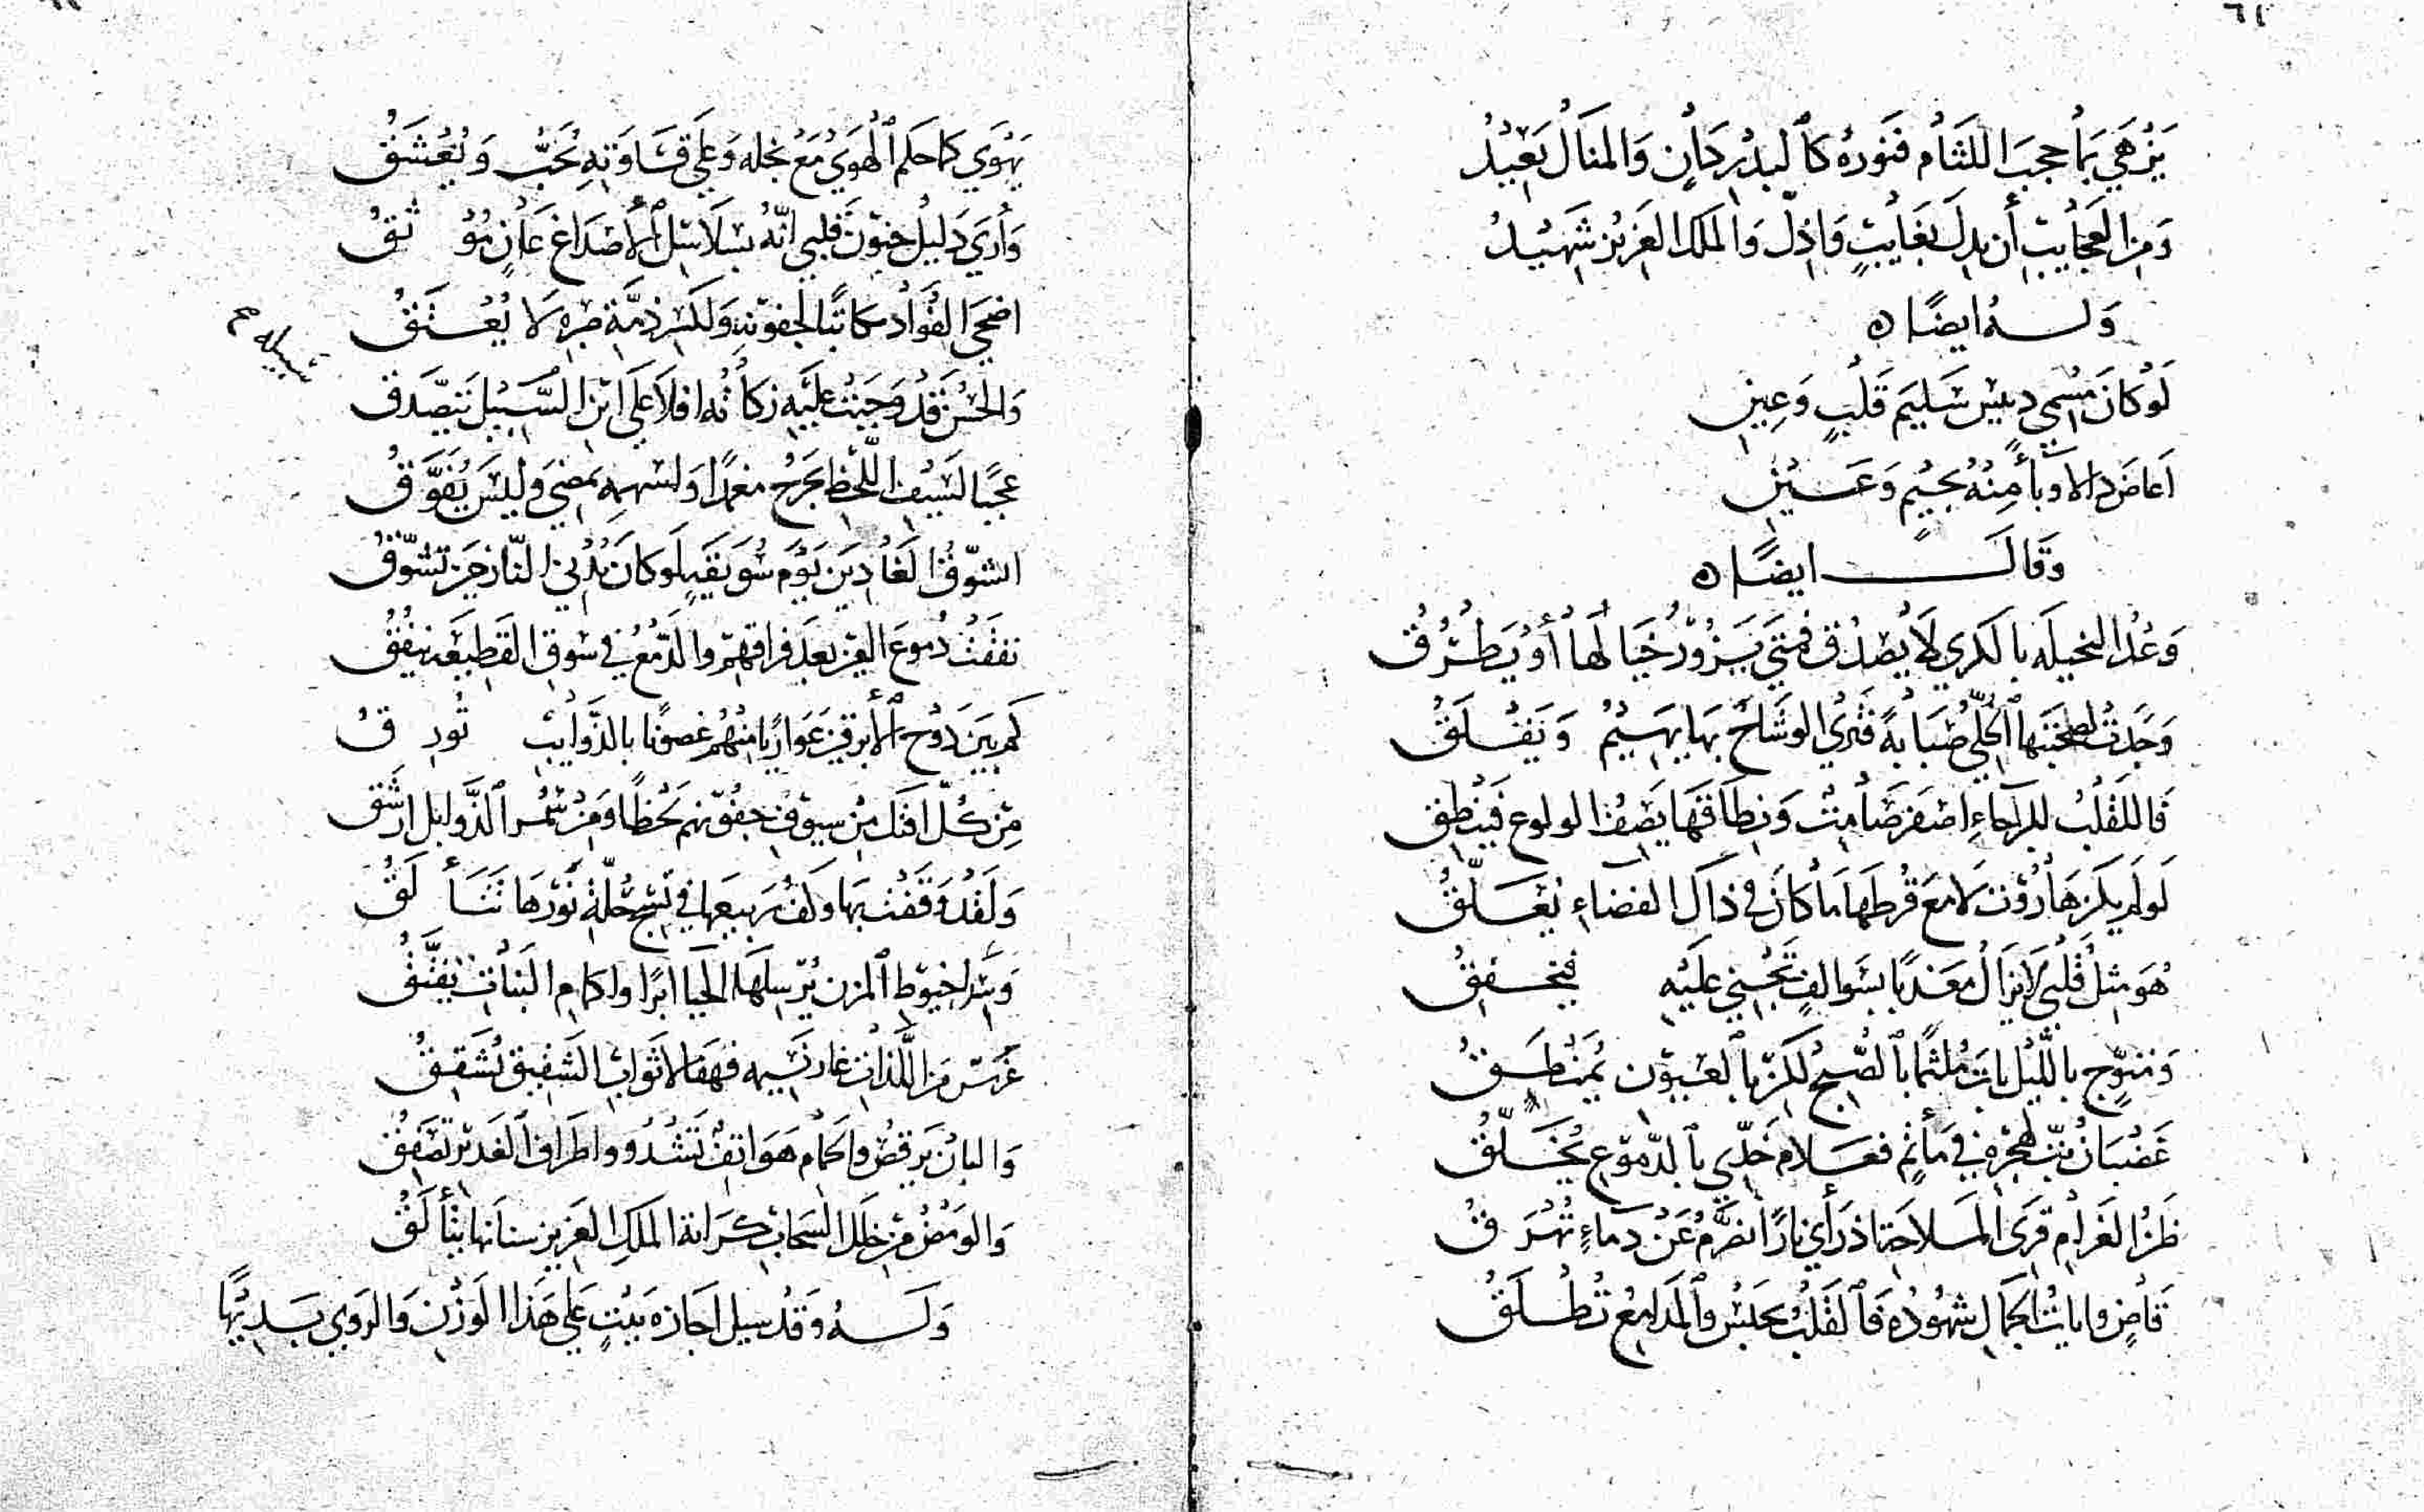 ٦١
يَزْهَي بمَا حجبَ اللثَام فنَوره كالبدْر دَانٍ وَالمنَالُ بَعِيْدُ
وَمِن العجَايبِ أن يدلّ بغَايبٍ وَاذلّ وَالملك العَزيْز شهيْدُ
وَلــه ايضًا ه
لَوْ كانَ سَليمَ قَلبٍ وَعِين
منْهُ بجيْمٍ وَعَـين
وَقَالَ ايضًا ه
وَعْد البخيلَه بالكري لا يُصْدق فمتَي يَزوْر خيَالهَا أوْ يَطْرُق
وَجدَتْ الحليّ صَبَابةً فترَي الوشاحَ بهَا يهَيْمُ وَيَقْلَقُ
قَالقلبُ للرّجَاءِ اصْفرَ صَامتْ وَنطَاقهَا يَصفُ الولوع فَينطق
لَو لَم يكن هَارُوْت لا مَعَ قُرطهَا مَا كانَ في ذاك الفضَاءِ يُعَلّقُ
هُوَ مثل قلْبي لا يزَالُ مَعَذبًا بسَوالفٍ تَجْني علَيْهِ فيخفقُ
وَمتوّجٍ بالليْل بَاتَ مُلثمًا بالصّبح لكن بالعيوْن يمَنْطَقُ
غَضْبَانُ بتّ لهجْرهِ في مَأتمٍ فعَلامَ خدّي بالدّموْعِ يُخَلّقُ
ظَن الغَرامَ قِرَي المَلاحَة اذ رَأي نارًا تضَرَّمُ عَنْ دمَاءٍ تُهْرَقُ
قَاضٍ وايَاتُ الجمَالِ شهُوْدُه فَالقَلبُ يحبَسُ وَالمدَامعُ تُطْلَقُ
يَهْوَي كمَا حكم الهَوَيْ مَعْ بخله وَعَلي قسَاوَتهِ يُحَبُّ وَيُعْشَقُ
وَأرَي دَليلَ جنوْن قلبي انّهُ بسَلاسل الأصْدَاغ عَانٍ مُوْثَقُ
اضحَي الفؤَادُ مكاتبًا لجفوْنهِ وَلكسْر ذمّة صَبره لا يُعْتَقُ
سَبيله صح
وَالحسْن قدْ وَجَبَتْ علَيْهِ زكاتُه افلا عَلي ابْنِ السّبيْل يَتصّدقُ
عجبًا لسَيْف اللّحظ يَجرَحُ مغمدًا وَلسَهمهِ يمضي وَليْسَ يُفَوَّقُ
اتشوّق الغَاديْن يَوْم سُوَيْقَةٍ لَو كانَ يُدْني النّازحيْن تشوّقُ
نفقَتْ دُموعَ العيْن بعْدَ فراقهمْ وَالدّمعُ في سُوق القَطيْعَه ينفقُ
كم بَيْنَ دَوْح الأبرقيْن عَوَاريًا منهُمْ غصونًا بالذّوَايب تُورقُ
مِن كلّ افتك مِنْ سيوْف جفوْنهم لحظًا وَمنْ سُمْر الذّوَابل ارشَقُ
وَلَقدْ وَقَفْتُ بهَا وَكفّ ربيعهَا في نَسْج حُلّةِ نَوْرهَا تتَأَلّقُ
وَيَد لخيوْط المزن يُرسلهَا الحيَا ابَرًا وَاكمَام النبَات يُفتّقُ
عُرسٌ مِنَ اللّذات غارَ نَسيْمه فهَفَا لاثوَاب الشَّقيْق يُشَقّقُ
وَالبَانُ يَرقصُ وَالحمَامُ هَوَاتفٌ تَشْدُو وَاطرَاف الغَديْر تُصَفّقُ
وَالوَمْضُ مِن خلَل السّحَاب كرَايَة المَلكِ العَزيز سنانُهَا يتألّقُ
وَلــهُ وَقدْ سيل اجَازه بَيْتٍ عَلي هَذا الوَزْنِ وَالروي بَديهًا